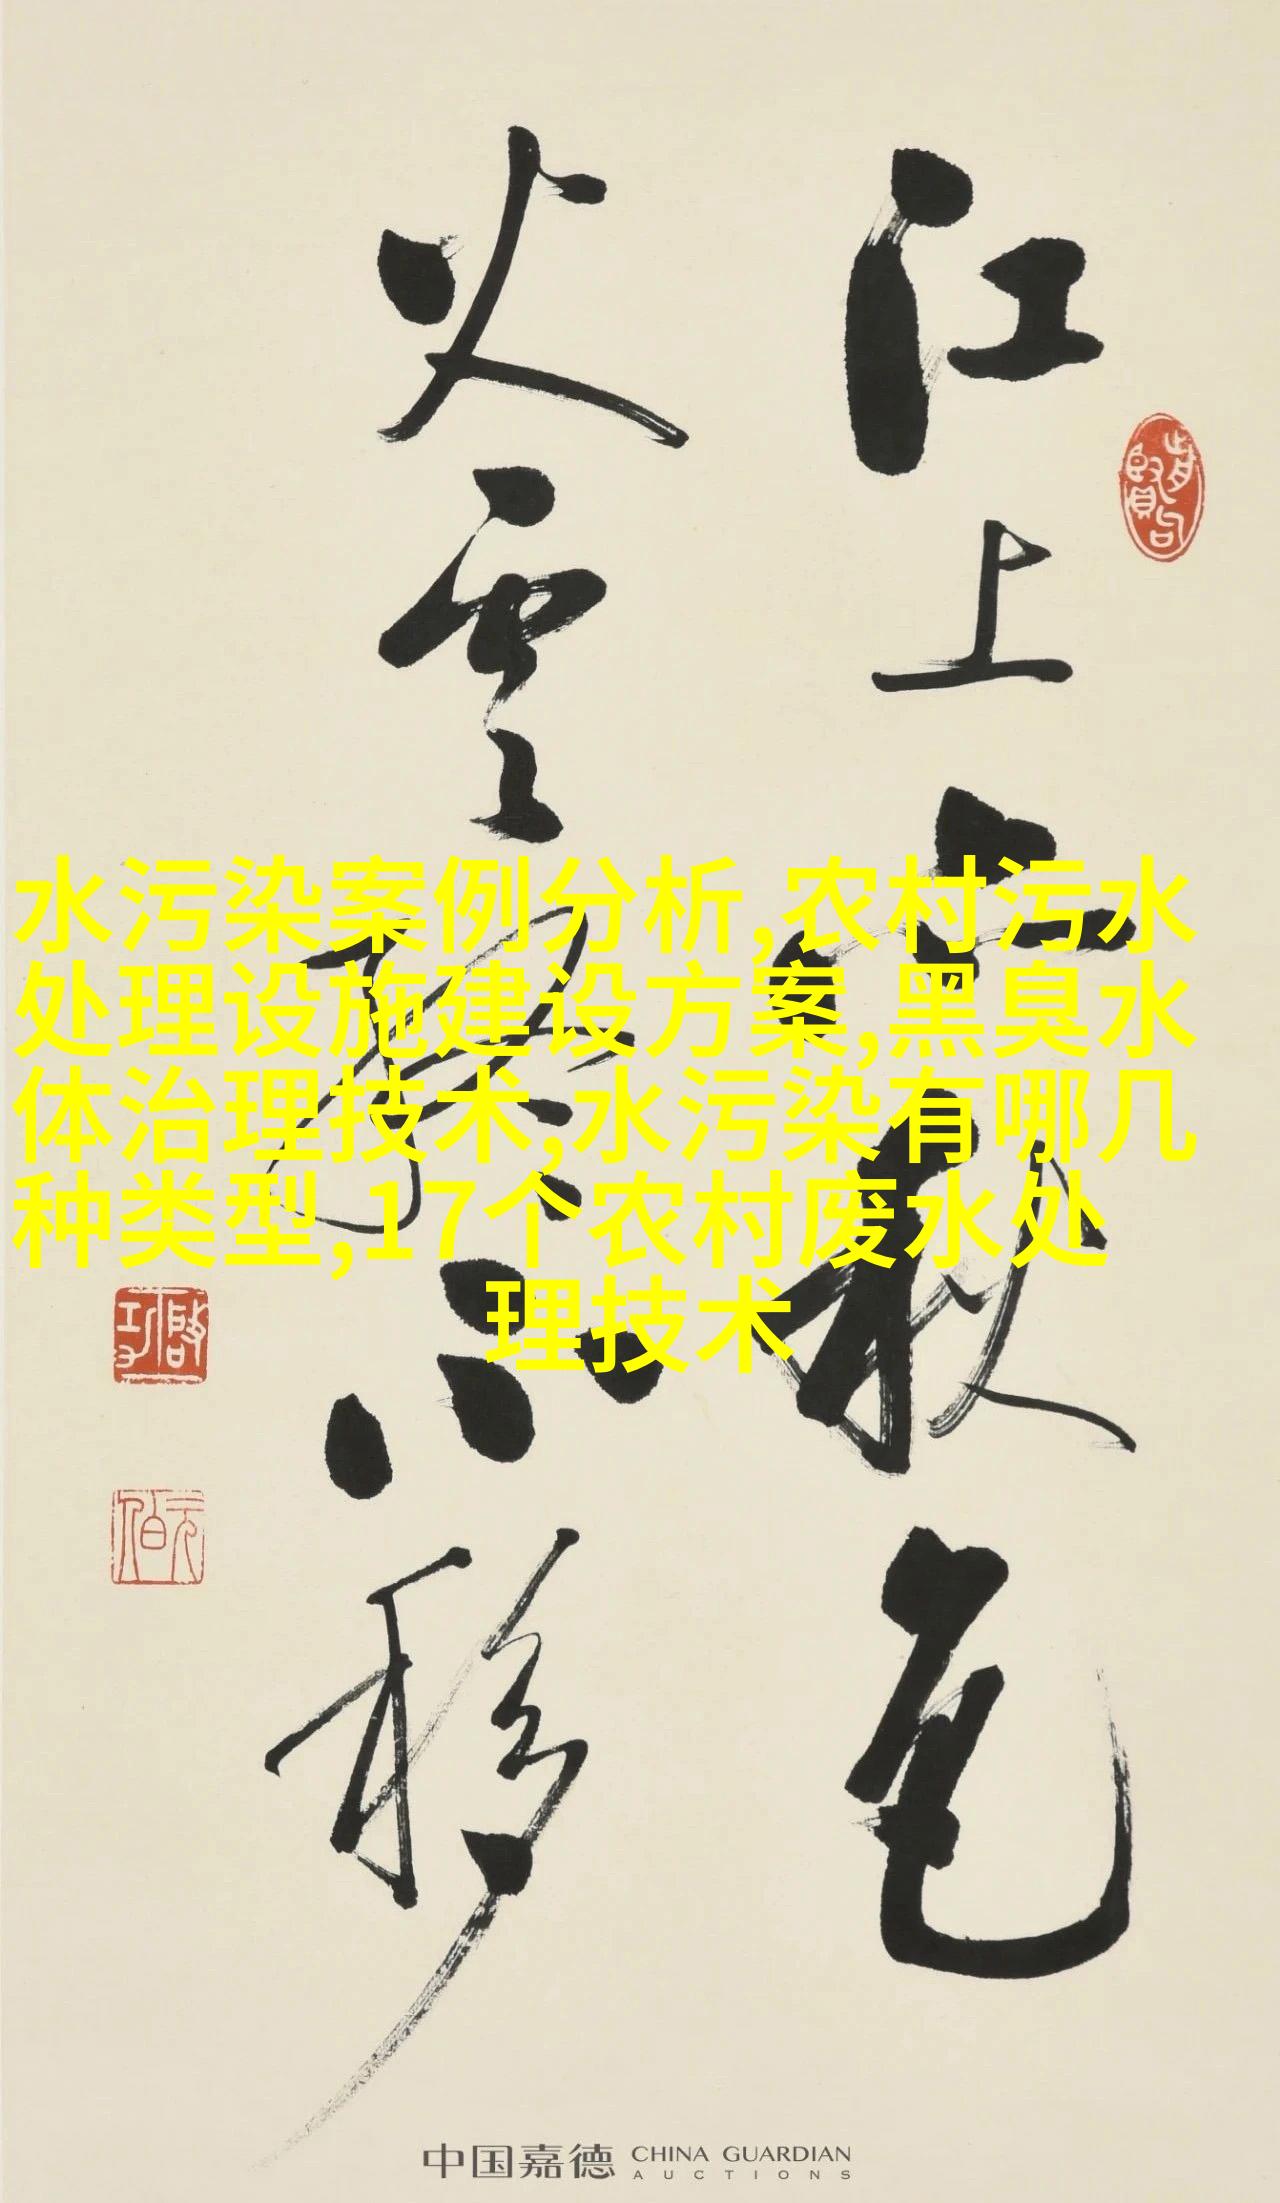 江上亦秋色
火雲終不移
啓功
元白
水污染案例分析,农村污水
处理设施建设方案,黑臭水
体治理技术,水污染有哪几
种类型,17个农村废水处
理技术
中国嘉德 CHINA GUARDIAN
AUCTIONS